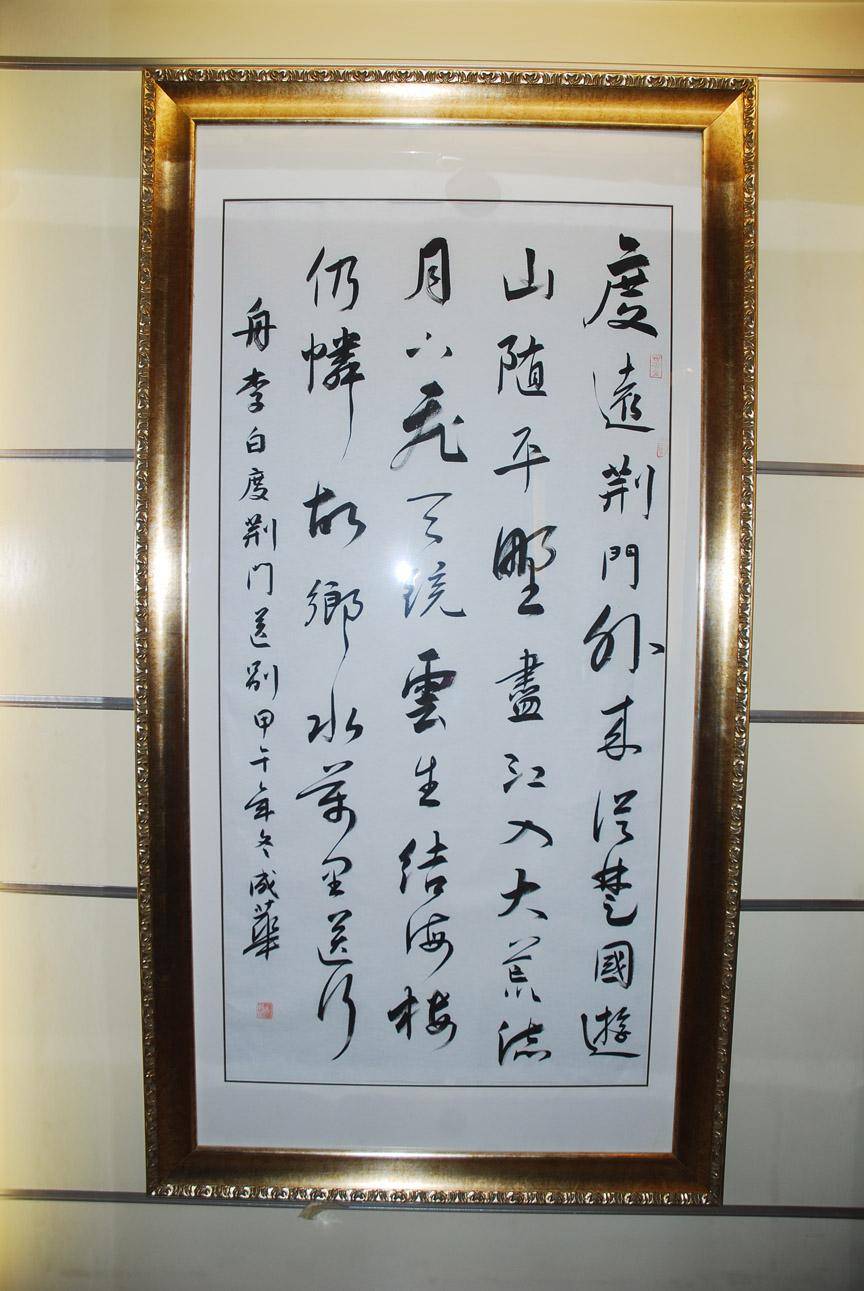 度遠荆門外来從楚國遊
山随平野盡江入大荒流
月下飛天鏡雲生結海楼
仍憐故鄉水萬里送行
舟李白度荆门送别甲午年冬成華